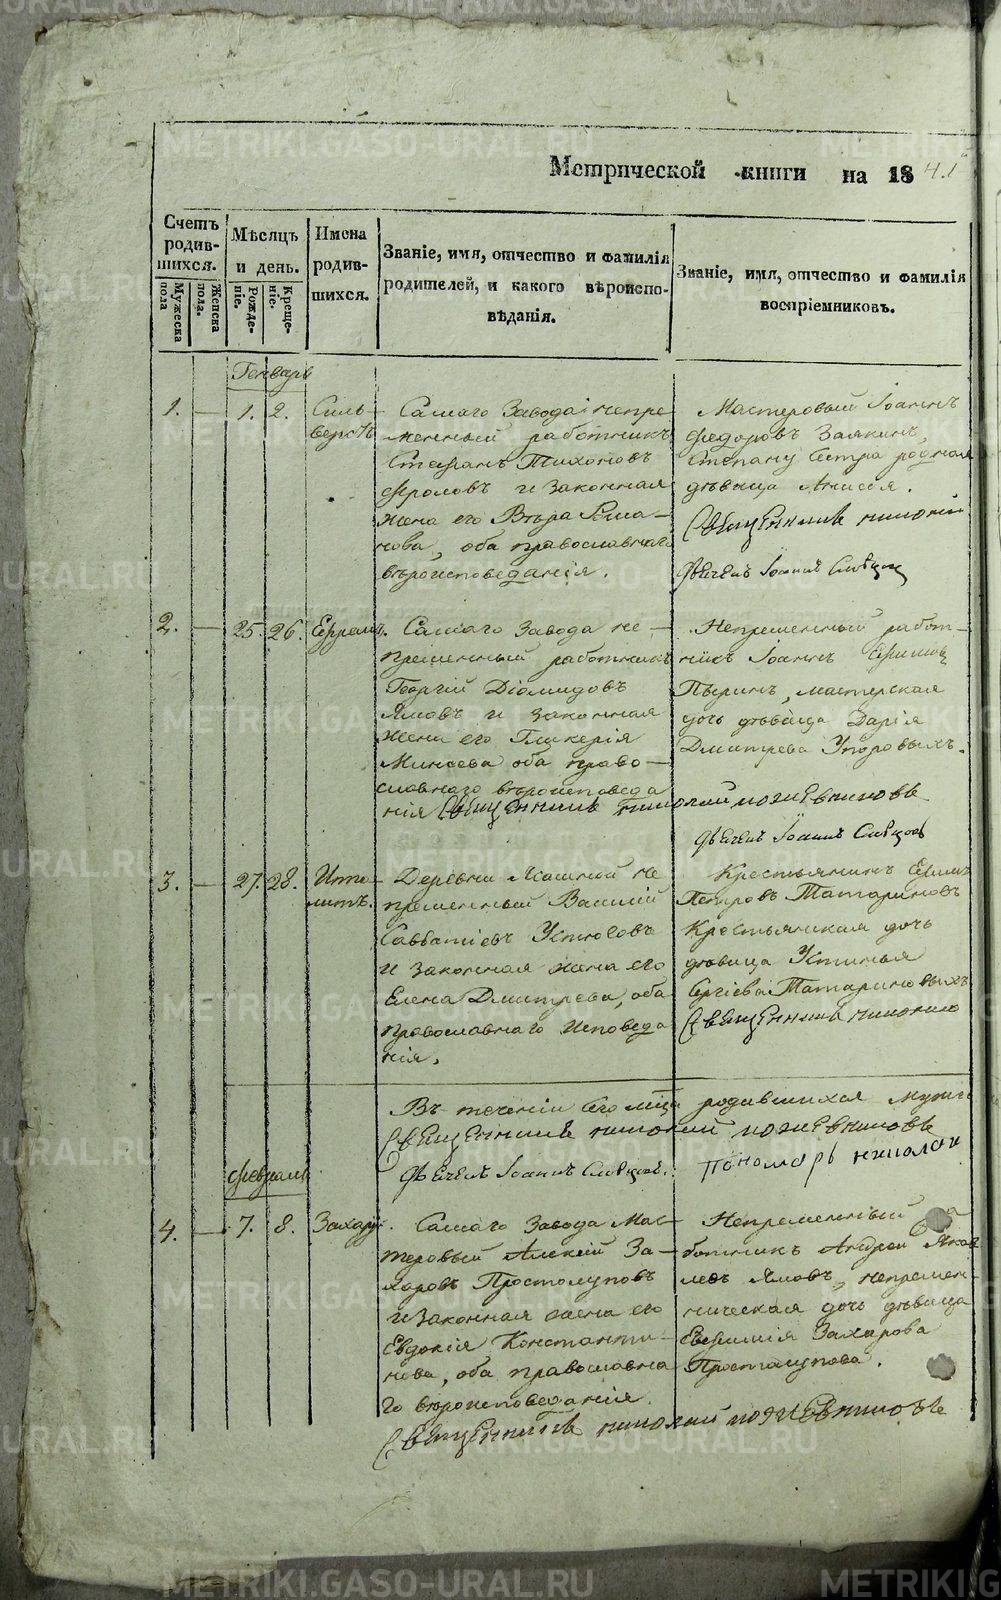 Метрической книги на 1841
Счетъ родив-шихся.
Мужеска пола
Женска пола.
Мѣсяцъ и день.
Рожде-ніе.
Креще-ніе.
Имена родив-шихся.
Званіе, имя, отчество и фамилія
родителей, и какого вѣроиспо-
вѣданія.
Званіе, имя, отчество и фамилія
воспріемниковъ.
Генварь
1. — 1. 2. Силь-
верстъ
Самаго Завода непре-
менный работникъ
Стефанъ Тихоновъ
Фроловъ и законная
жена его Вѣра
нова, оба православнаго
вѣроисповеданія.
Мастеровый Іоаннъ
Федоровъ Заякинъ,
Степану сестра родная
дѣвица Анисья.
Священникъ николай
Дьячекъ Іоаннъ Словцов
2. — 25. 26. Ефремъ.
Самаго Завода не-
пременный работникъ
Георгій Діомидовъ
Ямовъ и законная
жена его Гликерія
Минеева оба право-
славнаго вѣроисповеда
нія Священникъ николай
Непременный работ-
никъ Іоаннъ
Пыринъ, мастерская
дочь дѣвица Дарія
Дмитрева
Дьячекъ Іоаннъ Словцовъ
3. — 27. 28. Иппо-
литъ.
Деревни не
пременный Василій
Савватіевъ Устюговъ
и законная жена его
Елена Дмитрева, оба
православнаго исповеда
нія.
Крестьянинъ
Петровъ Татариновъ
Крестьянская дочь
дѣвица Устинья
Сергіева Татариновыхъ
Священникъ николай
Въ теченіи сего родившихся
Священникъ николай
Дьячекъ Іоаннъ Словцовъ. пономарь николай
Февраль
4. — 7. 8. Захарій.
Самаго Завода Мас-
теровый Алексій За-
харовъ Простолуповъ
и законная жена его
Евдокія Константи-
нова, оба православна
го вѣроисповеданія.
Священникъ николай
Непременный ра
ботникъ Андрей Яков
левъ Ямовъ, непремен-
ническая дочь дѣвица
Евфимія Захарова
Простолупова.
METRIKI.GASO-URAL.RU